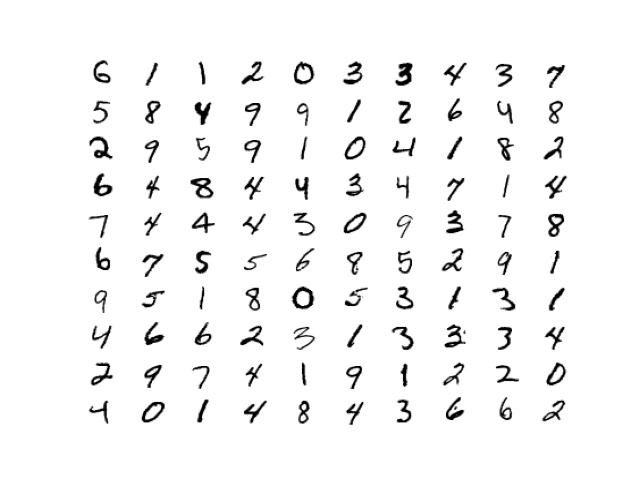 6 1 1 2 0 3 3 4 3 7
5 8 4 9 9 1 2 6 4 8
2 9 5 9 1 0 4 1 8 2
6 4 8 4 4 3 4 7 1 4
7 4 4 4 3 0 9 3 7 8
6 7 5 5 6 8 5 2 9 1
9 5 1 8 0 5 3 1 3 1
4 6 6 2 3 1 3 3 3 4
2 9 7 4 1 9 1 2 2 0
4 0 1 4 8 4 3 6 6 2